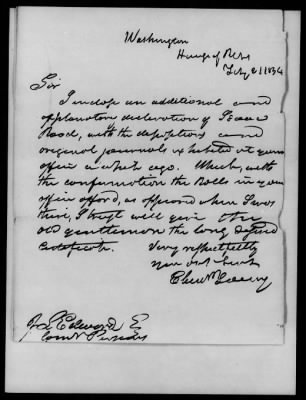 Washington
House of Reps
Feby 21 1834
Sir
I inclose an additional and
explanatory declaration of Isaac
with the depositions and
original journals exhibited at your
office a week ago. Which, with
the confirmation the Rolls in your
office afford, as appeared when I was
there, I trust will give the
old gentleman the long
certificate.
Very respectfully
your obt Servt
J. L. Edwards E
Comr Pensions